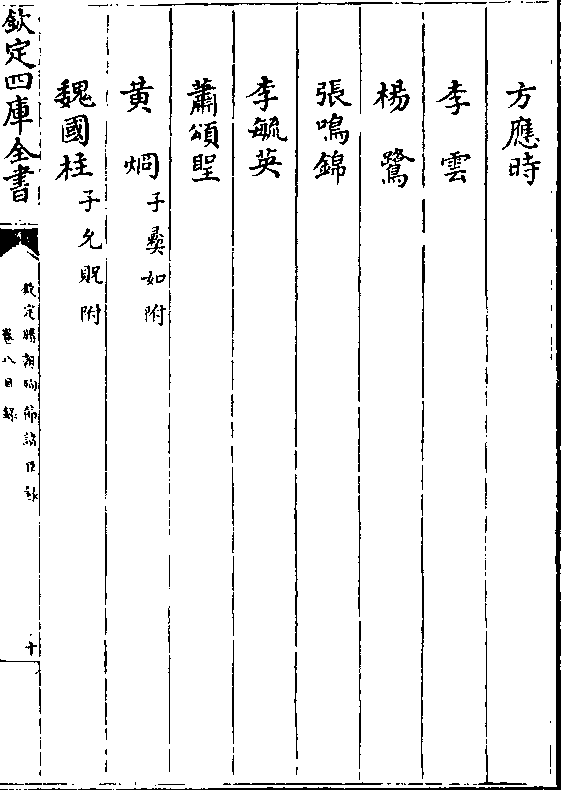 方應時
李雲
楊鷺
張鳴錦
李毓英
蕭頌聖
黄烱子彛如附
魏國柱子允貺附
欽定四庫全書
欽定勝朝殉節諸臣録
卷八目録
十